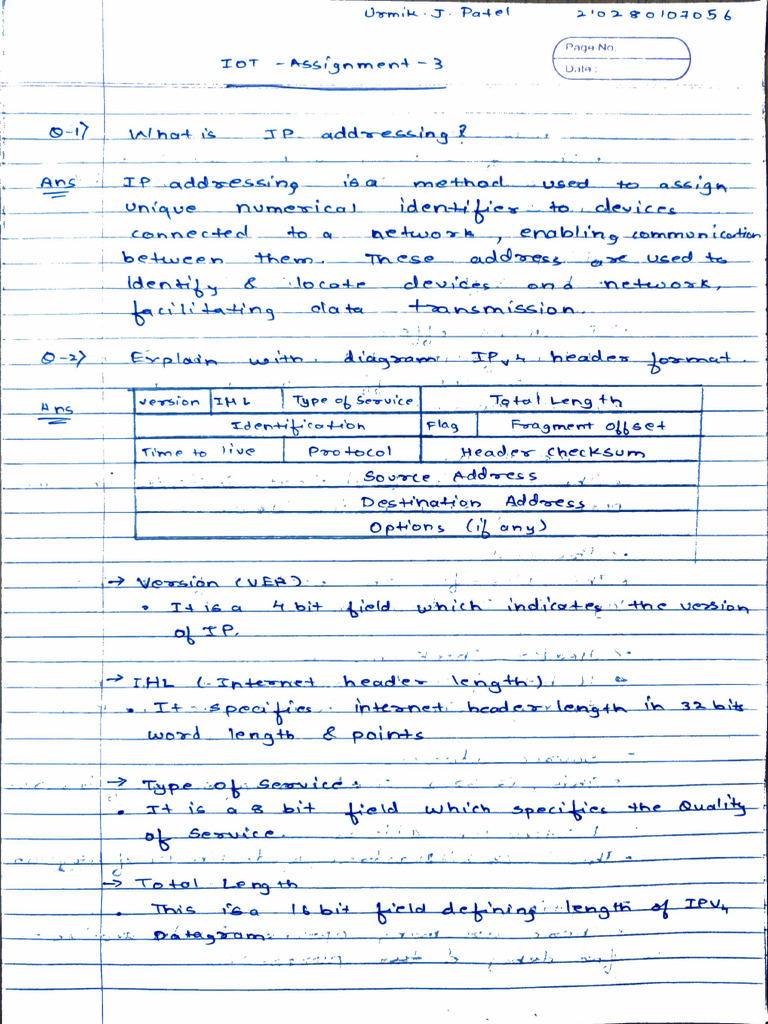 Urmik. J. Patel 210280107056
Page No.
Date:
IOT - Assignment - 3
Q-1) What is IP addressing?
Ans IP addressing is a method used to assign
unique numerical identifier to devices
connected to a network, enabling communication
between them. These address are used to
Identify & locate devices and network,
facilitating data transmission.
Q-2) Explain with diagram IPv4 header format.
Ans
Version IHL Type of Service Total Length
Identification Flag Fragment offset
Time to live Protocol Header checksum
Source Address
Destination Address
Options (if any)
→ Version (VER)
• It is a 4 bit field which indicates the version
of IP.
→ IHL (Internet header length)
• It specifies internet header length in 32 bits
word length & points
→ Type of Service.
• It is a 8 bit field which specifies the Quality
of Service.
→ Total Length
• This is a 16 bit field defining length of IPV4
Datagram.